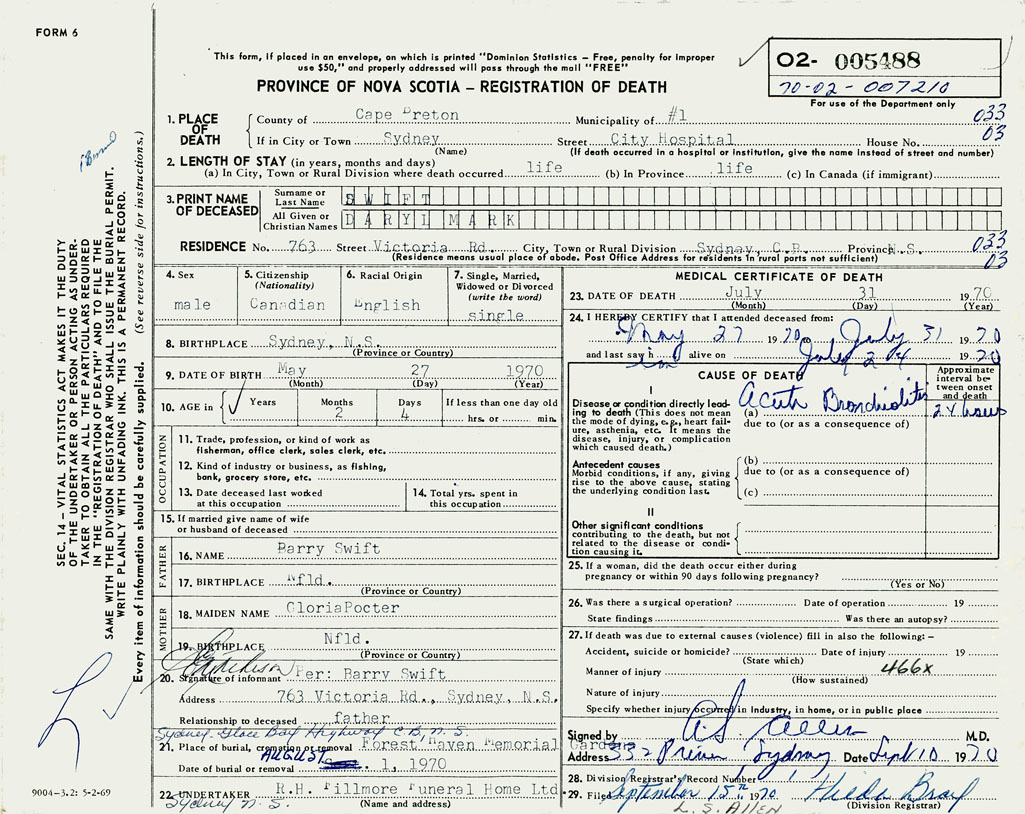 FORM 6
This form, if placed in an envelope, on which is printed "Dominion Statistics – Free, penalty for improper
use $50," and properly addressed will pass through the mail "FREE"
PROVINCE OF NOVA SCOTIA – REGISTRATION OF DEATH
02- 005488
70-02-007210
For use of the Department only
1. PLACE OF DEATH
County of Cape Breton Municipality of #1 033
If in City or Town Sydney Street City Hospital House No. 03
(Name) (If death occurred in a hospital or institution, give the name instead of street and number)
2. LENGTH OF STAY (in years, months and days)
(a) In City, Town or Rural Division where death occurred life (b) In Province life (c) In Canada (if immigrant)
3. PRINT NAME OF DECEASED
Surname or Last Name SWIFT
All Given or Christian Names DARYL MARK
RESIDENCE No. 763 Street Victoria Rd. City, Town or Rural Division Sydney, C.B. Province N.S. 033
(Residence means usual place of abode. Post Office Address for residents in rural parts not sufficient) 03
4. Sex
male
5. Citizenship
(Nationality)
Canadian
6. Racial Origin
English
7. Single, Married,
Widowed or Divorced
(write the word)
single
8. BIRTHPLACE Sydney, N.S.
(Province or Country)
9. DATE OF BIRTH May 27 1970
(Month) (Day) (Year)
10. AGE in
Years
Months
2
Days
4
If less than one day old
hrs. or min.
OCCUPATION
11. Trade, profession, or kind of work as
fisherman, office clerk, sales clerk, etc.
12. Kind of industry or business, as fishing,
bank, grocery store, etc.
13. Date deceased last worked
at this occupation
14. Total yrs. spent in
this occupation
15. If married give name of wife
or husband of deceased
FATHER
16. NAME Barry Swift
17. BIRTHPLACE Nfld.
(Province or Country)
MOTHER
18. MAIDEN NAME GloriaPocter
19. BIRTHPLACE Nfld.
(Province or Country)
20. Signature of informant Per: Barry Swift
Address 763 Victoria Rd., Sydney, N.S.
Relationship to deceased father
Sydney-Glace Bay Highway C.B, N.S.
21. Place of burial, cremation or removal Forest Haven Memorial Gardens
AUGUST
Date of burial or removal 1, 1970
22. UNDERTAKER R.H. Fillmore Funeral Home Ltd
Sydney N.S. (Name and address)
MEDICAL CERTIFICATE OF DEATH
23. DATE OF DEATH July 31 1970
(Month) (Day) (Year)
24. I HEREBY CERTIFY that I attended deceased from:
May 27 1970 to July 31 1970
and last saw him alive on July 24 1970
CAUSE OF DEATH
Approximate
interval be-
tween onset
and death
I
Disease or condition directly lead-
ing to death (This does not mean
the mode of dying, e.g., heart fail-
ure, asthenia, etc. It means the
disease, injury, or complication
which caused death.)
(a) Acute Bronchiolitis 24 hours
due to (or as a consequence of)
Antecedent causes
Morbid conditions, if any, giving
rise to the above cause, stating
the underlying condition last.
(b)
due to (or as a consequence of)
(c)
II
Other significant conditions
contributing to the death, but not
related to the disease or condi-
tion causing it.
25. If a woman, did the death occur either during
pregnancy or within 90 days following pregnancy?
(Yes or No)
26. Was there a surgical operation? Date of operation 19
State findings Was there an autopsy?
27. If death was due to external causes (violence) fill in also the following:–
Accident, suicide or homicide? Date of injury 19
(State which)
Manner of injury 466X
(How sustained)
Nature of injury
Specify whether injury occurred in industry, in home, or in public place
Signed by A.S. Allen M.D.
Address 332 Prince Sydney Date Sept 10 1970
28. Division Registrar's Record Number
29. Filed September 15th 1970 Hilda
(Division Registrar)
L.S. ALLEN
9004-3.2: 5-2-69
SEC. 14 – VITAL STATISTICS ACT MAKES IT THE DUTY
OF THE UNDERTAKER OR PERSON ACTING AS UNDER-
TAKER TO OBTAIN ALL THE PARTICULARS REQUIRED
IN THE "REGISTRATION OF DEATH" AND TO FILE THE
SAME WITH THE DIVISION REGISTRAR WHO SHALL ISSUE THE BURIAL PERMIT.
WRITE PLAINLY WITH UNFADING INK. THIS IS A PERMANENT RECORD.
Every item of information should be carefully supplied. (See reverse side for instructions.)